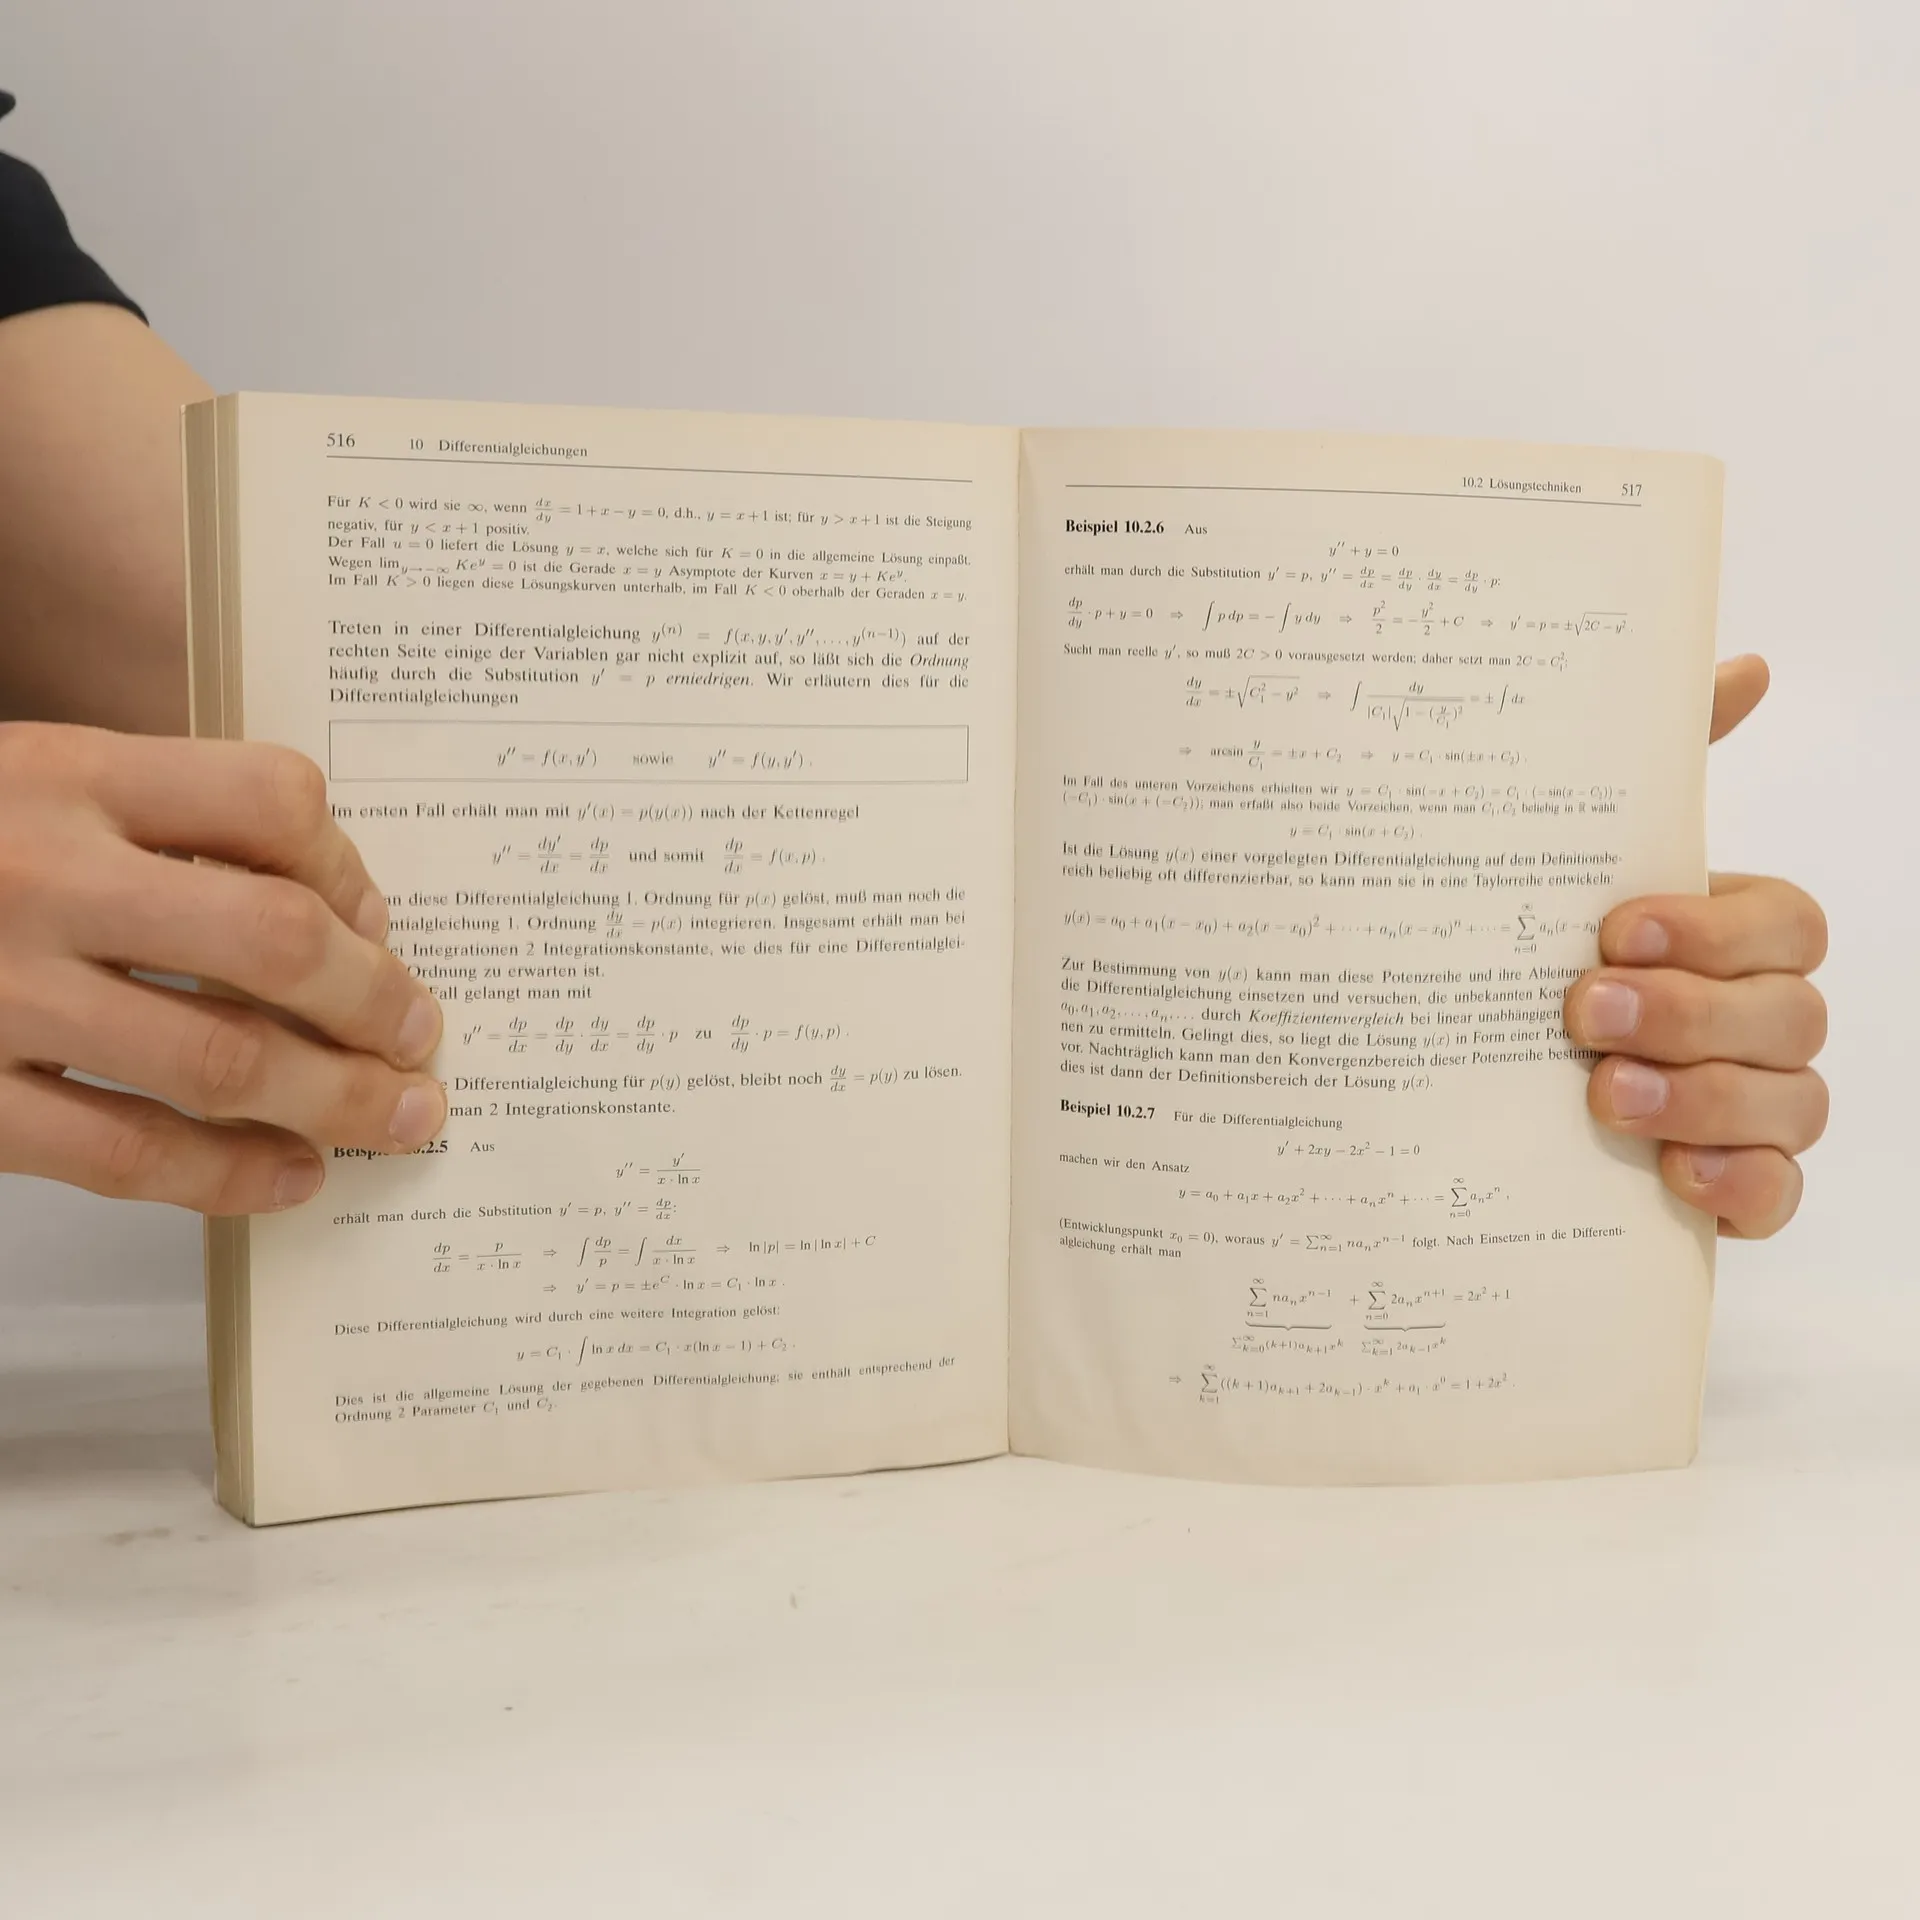 516 10 Differentialgleichungen
Für K < 0 wird sie ∞, wenn dx/dy = 1 + x − y = 0, d.h., y = x + 1 ist; für y > x + 1 ist die Steigung
negativ, für y < x + 1 positiv.
Der Fall u = 0 liefert die Lösung y = x, welche sich für K = 0 in die allgemeine Lösung einpaßt.
Wegen lim_{y→−∞} Ke^y = 0 ist die Gerade x = y Asymptote der Kurven x = y + Ke^y.
Im Fall K > 0 liegen diese Lösungskurven unterhalb, im Fall K < 0 oberhalb der Geraden x = y.
Treten in einer Differentialgleichung y^(n) = f(x, y, y′, y″, . . . , y^(n−1)) auf der
rechten Seite einige der Variablen gar nicht explizit auf, so läßt sich die Ordnung
häufig durch die Substitution y′ = p erniedrigen. Wir erläutern dies für die
Differentialgleichungen
y″ = f(x, y′) sowie y″ = f(y, y′) .
Im ersten Fall erhält man mit y′(x) = p(y(x)) nach der Kettenregel
y″ = dy′/dx = dp/dx und somit dp/dx = f(x, p) .
an diese Differentialgleichung 1. Ordnung für p(x) gelöst, muß man noch die
ntialgleichung 1. Ordnung dy/dx = p(x) integrieren. Insgesamt erhält man bei
ei Integrationen 2 Integrationskonstante, wie dies für eine Differentialglei-
Ordnung zu erwarten ist.
Fall gelangt man mit
y″ = dp/dx = dp/dy · dy/dx = dp/dy · p zu dp/dy · p = f(y, p) .
e Differentialgleichung für p(y) gelöst, bleibt noch dy/dx = p(y) zu lösen.
man 2 Integrationskonstante.
.2.5 Aus
y″ = y′/(x · ln x)
erhält man durch die Substitution y′ = p, y″ = dp/dx:
dp/dx = p/(x · ln x) ⇒ ∫ dp/p = ∫ dx/(x · ln x) ⇒ ln |p| = ln | ln x| + C
⇒ y′ = p = ±e^C · ln x = C₁ · ln x .
Diese Differentialgleichung wird durch eine weitere Integration gelöst:
y = C₁ · ∫ ln x dx = C₁ · x(ln x − 1) + C₂ .
Dies ist die allgemeine Lösung der gegebenen Differentialgleichung; sie enthält entsprechend der
Ordnung 2 Parameter C₁ und C₂.
10.2 Lösungstechniken 517
Beispiel 10.2.6 Aus
y″ + y = 0
erhält man durch die Substitution y′ = p, y″ = dp/dx = dp/dy · dy/dx = dp/dy · p:
dp/dy · p + y = 0 ⇒ ∫ p dp = − ∫ y dy ⇒ p²/2 = − y²/2 + C ⇒ y′ = p = ±√(2C − y²) .
Sucht man reelle y′, so muß 2C > 0 vorausgesetzt werden; daher setzt man 2C = C₁²:
dy/dx = ±√(C₁² − y²) ⇒ ∫ dy/(|C₁|√(1 − (y/C₁)²)) = ± ∫ dx
⇒ arcsin y/C₁ = ±x + C₂ ⇒ y = C₁ · sin(±x + C₂) .
Im Fall des unteren Vorzeichens erhielten wir y = C₁ · sin(−x + C₂) = C₁ · (− sin(x − C₂)) =
(−C₁) · sin(x + (−C₂)); man erfaßt also beide Vorzeichen, wenn man C₁, C₂ beliebig in ℝ wählt:
y = C₁ · sin(x + C₂) .
Ist die Lösung y(x) einer vorgelegten Differentialgleichung auf dem Definitionsbe-
reich beliebig oft differenzierbar, so kann man sie in eine Taylorreihe entwickeln:
y(x) = a₀ + a₁(x − x₀) + a₂(x − x₀)² + · · · + aₙ(x − x₀)ⁿ + · · · = ∑_{n=0}^{∞} aₙ(x − x₀)
Zur Bestimmung von y(x) kann man diese Potenzreihe und ihre Ableitung
die Differentialgleichung einsetzen und versuchen, die unbekannten Koef
a₀, a₁, a₂, . . . , aₙ, . . . durch Koeffizientenvergleich bei linear unabhängigen
nen zu ermitteln. Gelingt dies, so liegt die Lösung y(x) in Form einer Pot
vor. Nachträglich kann man den Konvergenzbereich dieser Potenzreihe bestimm
dies ist dann der Definitionsbereich der Lösung y(x).
Beispiel 10.2.7 Für die Differentialgleichung
y′ + 2xy − 2x² − 1 = 0
machen wir den Ansatz
y = a₀ + a₁x + a₂x² + · · · + aₙxⁿ + · · · = ∑_{n=0}^{∞} aₙxⁿ ,
(Entwicklungspunkt x₀ = 0), woraus y′ = ∑_{n=1}^{∞} naₙx^{n−1} folgt. Nach Einsetzen in die Differenti-
algleichung erhält man
∑_{n=1}^{∞} naₙx^{n−1} + ∑_{n=0}^{∞} 2aₙx^{n+1} = 2x² + 1
∑_{k=0}^{∞}(k+1)a_{k+1}x^k ∑_{k=1}^{∞} 2a_{k−1}x^k
⇒ ∑_{k=1}^{∞} ((k + 1)a_{k+1} + 2a_{k−1}) · x^k + a₁ · x⁰ = 1 + 2x² .